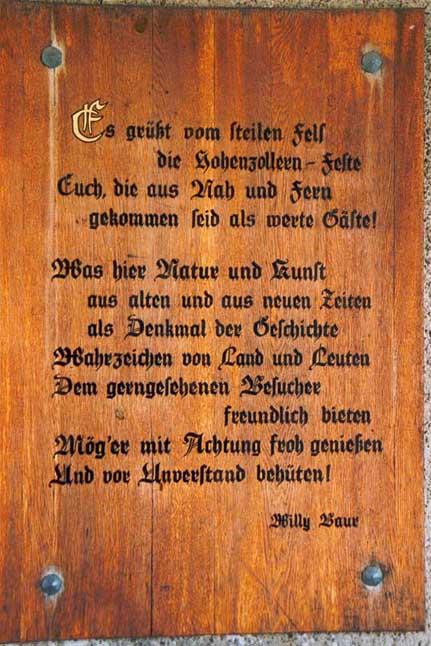 Es grüßt vom steilen Fels
die Hohenzollern-Feste
Euch, die aus Nah und Fern
gekommen seid als werte Gäste!
Was hier Natur und Kunst
aus alten und aus neuen Zeiten
als Denkmal der Geschichte
Wahrzeichen von Land und Leuten
Dem gerngesehenen Besucher
freundlich bieten
Mög'er mit Achtung froh genießen
Und vor Unverstand behüten!
Willy Baur